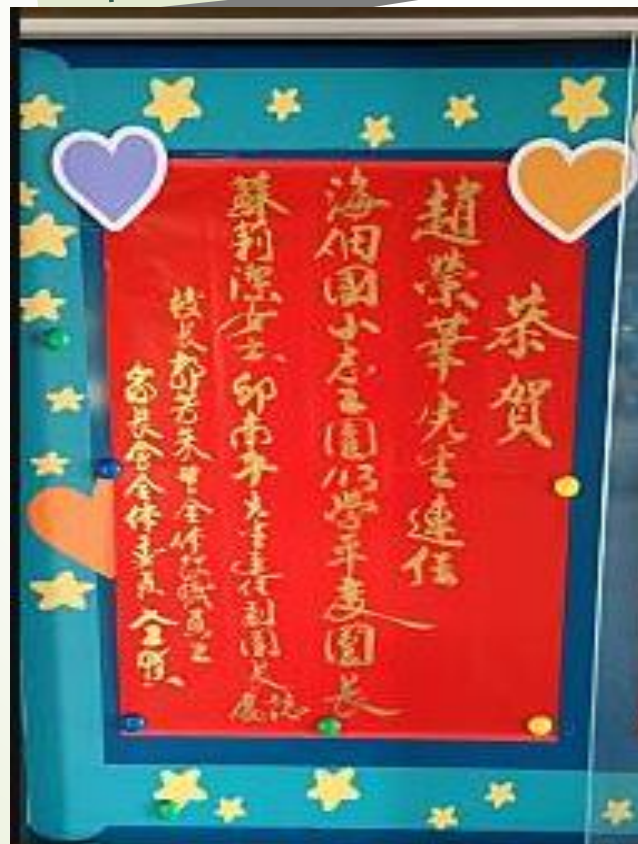 恭賀
趙榮華先生連任
海佃國小志工團108學年度團長
蘇莉潔女士、邱南先生連任副團長
校長 芳 暨全体教職員工
家長會全体委員 仝賀